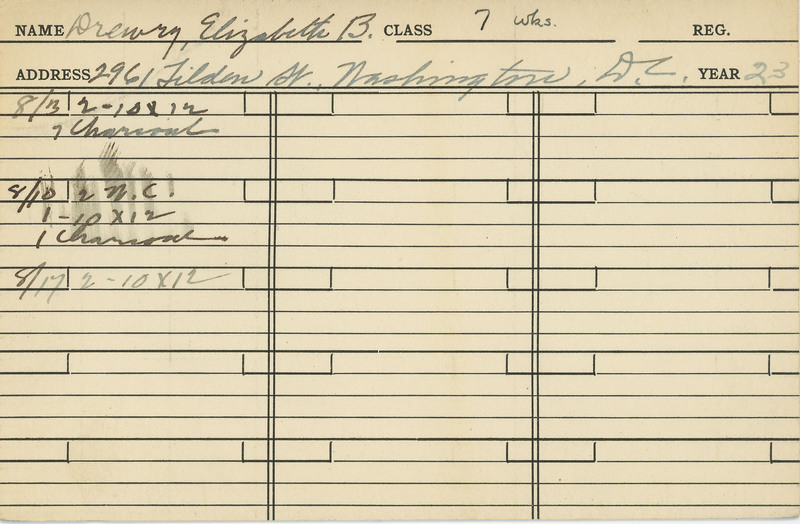 NAME Drewry, Elizabeth B. CLASS 7 wks. REG.
ADDRESS 2961 Tilden St., Washington, D.C. YEAR 23
8/13 2-10X12
7 Charcoal
8/10 2 W.C.
1-10X12
1 Charcoal
8/17 2-10X12